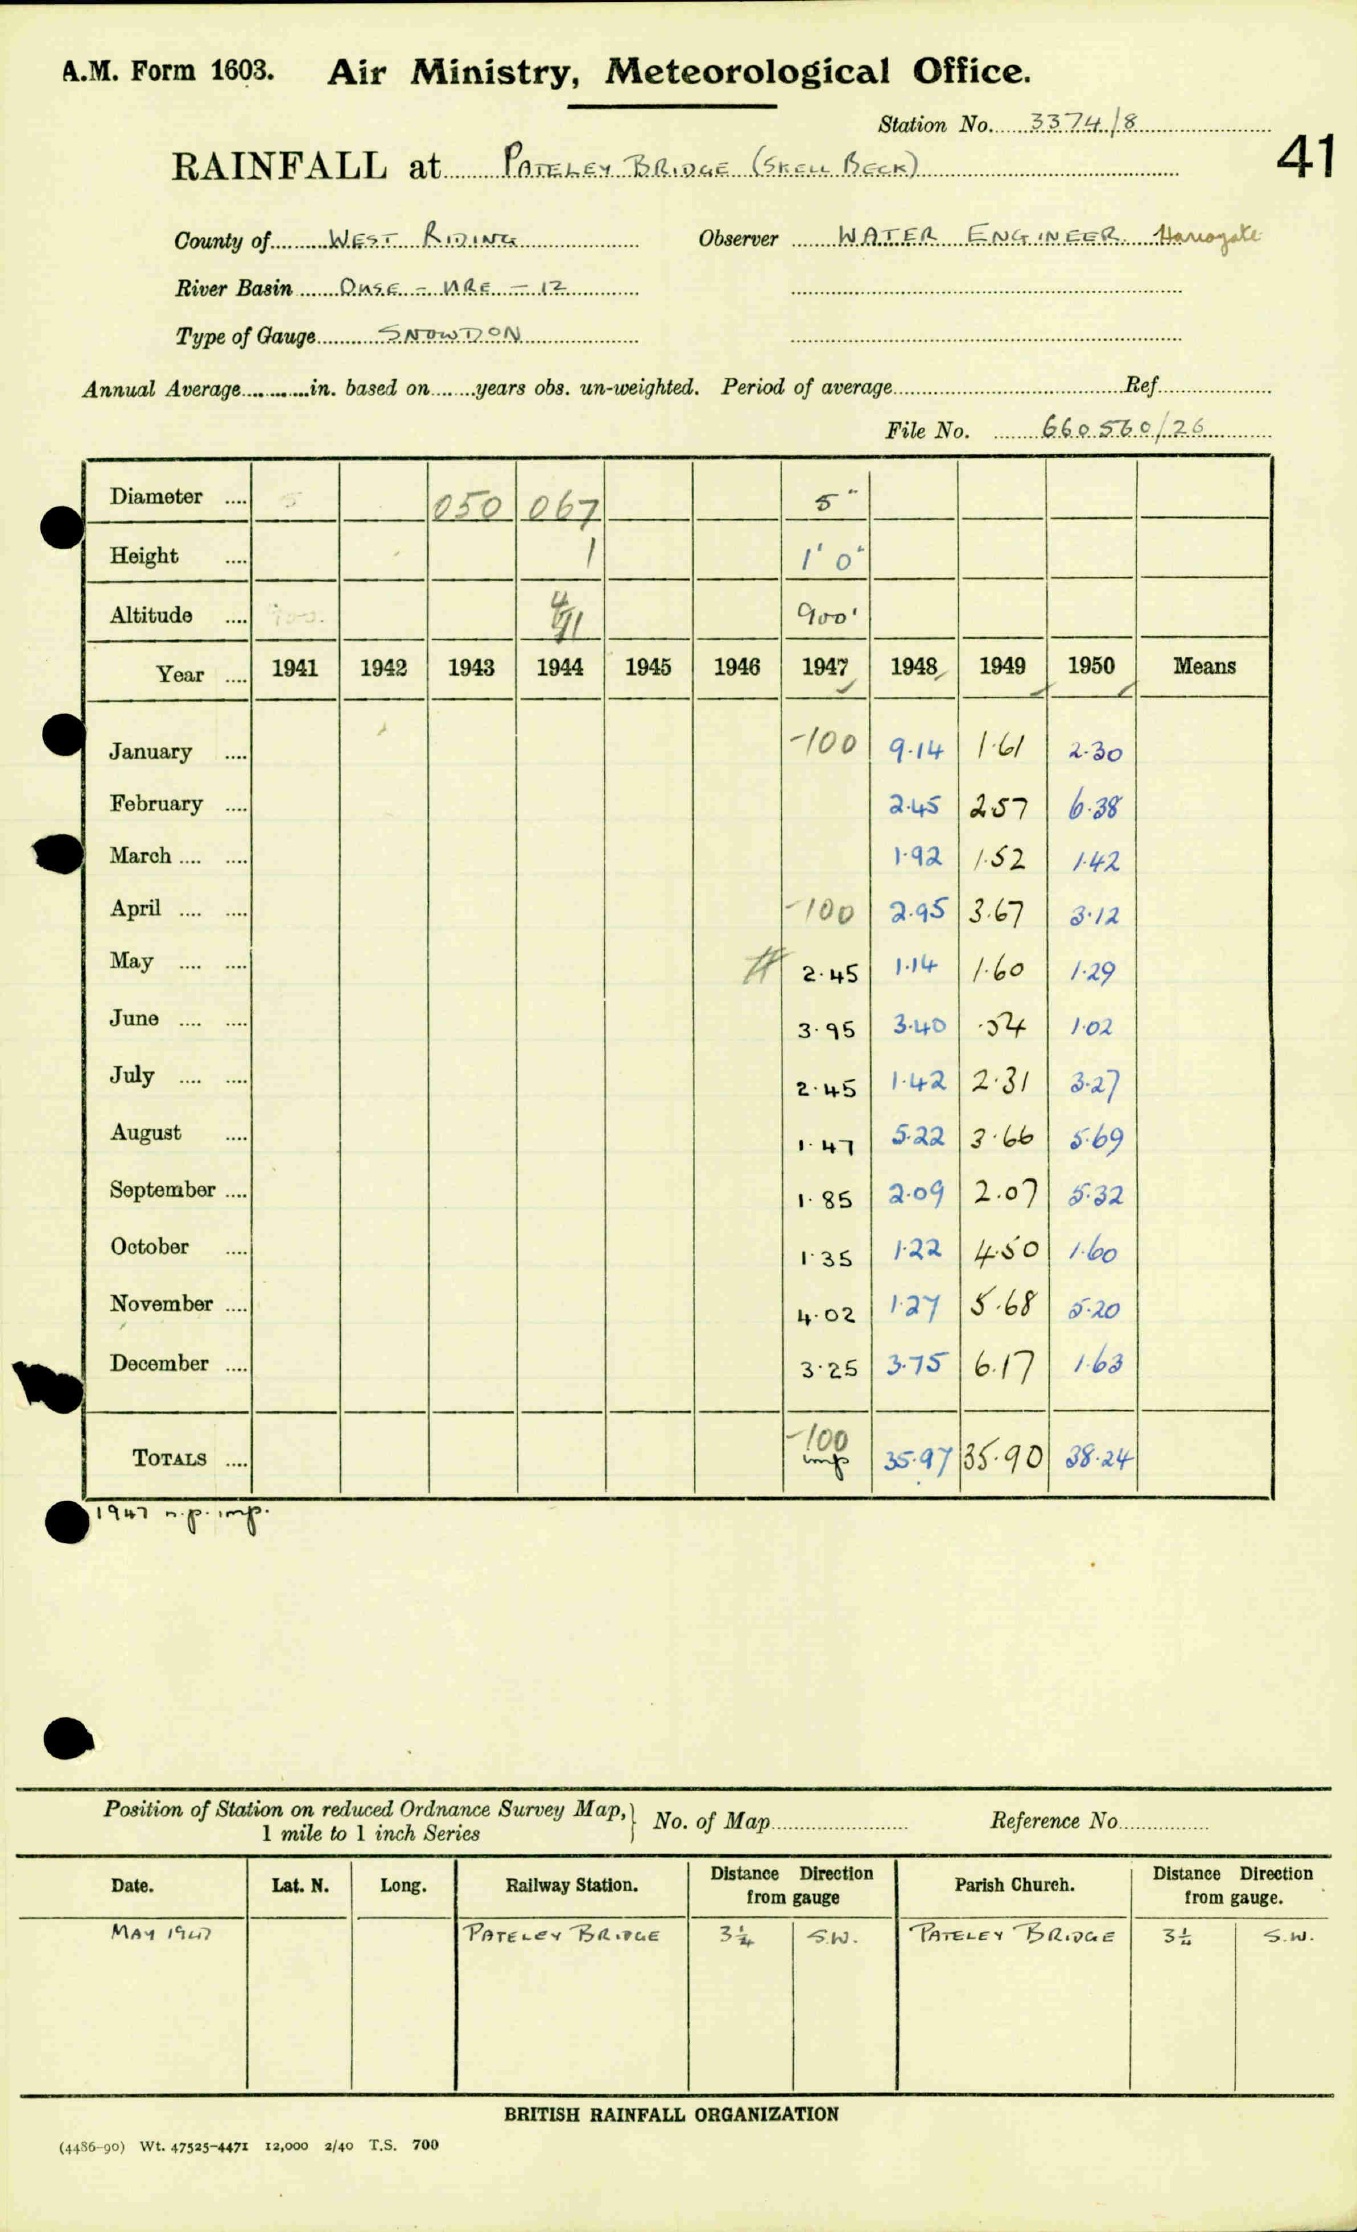 A.M. Form 1603. Air Ministry, Meteorological Office.
Station No. 3374/8
41
RAINFALL at PATELEY BRIDGE (SKELL BECK)
County of WEST RIDING Observer WATER ENGINEER Harrogate
River Basin OUSE - URE - 12
Type of Gauge SNOWDON
Annual Average in. based on years obs. un-weighted. Period of average Ref.
File No. 660560/26
Diameter .... 5 050 067 5"
Height .... 1 1' 0"
Altitude .... 900. 900'
Year .... 1941 1942 1943 1944 1945 1946 1947 1948 1949 1950 Means
January .... -100 9.14 1.61 2.30
February .... 2.45 2.57 6.38
March .... .... 1.92 1.52 1.42
April .... .... -100 2.95 3.67 3.12
May .... .... # 2.45 1.14 1.60 1.29
June .... .... 3.95 3.40 .54 1.02
July .... .... 2.45 1.42 2.31 3.27
August .... 1.47 5.22 3.66 5.69
September .... 1.85 2.09 2.07 5.32
October .... 1.35 1.22 4.50 1.60
November .... 4.02 1.27 5.68 5.20
December .... 3.25 3.75 6.17 1.63
TOTALS .... -100 imp 35.97 35.90 38.24
1947 n.p. imp.
Position of Station on reduced Ordnance Survey Map,} No. of Map Reference No
1 mile to 1 inch Series
Date. Lat. N. Long. Railway Station. Distance Direction from gauge Parish Church. Distance Direction from gauge.
MAY 1947 PATELEY BRIDGE 3¼ S.W. PATELEY BRIDGE 3¼ S.W.
BRITISH RAINFALL ORGANIZATION
(4486-90) Wt. 47525-4471 12,000 2/40 T.S. 700